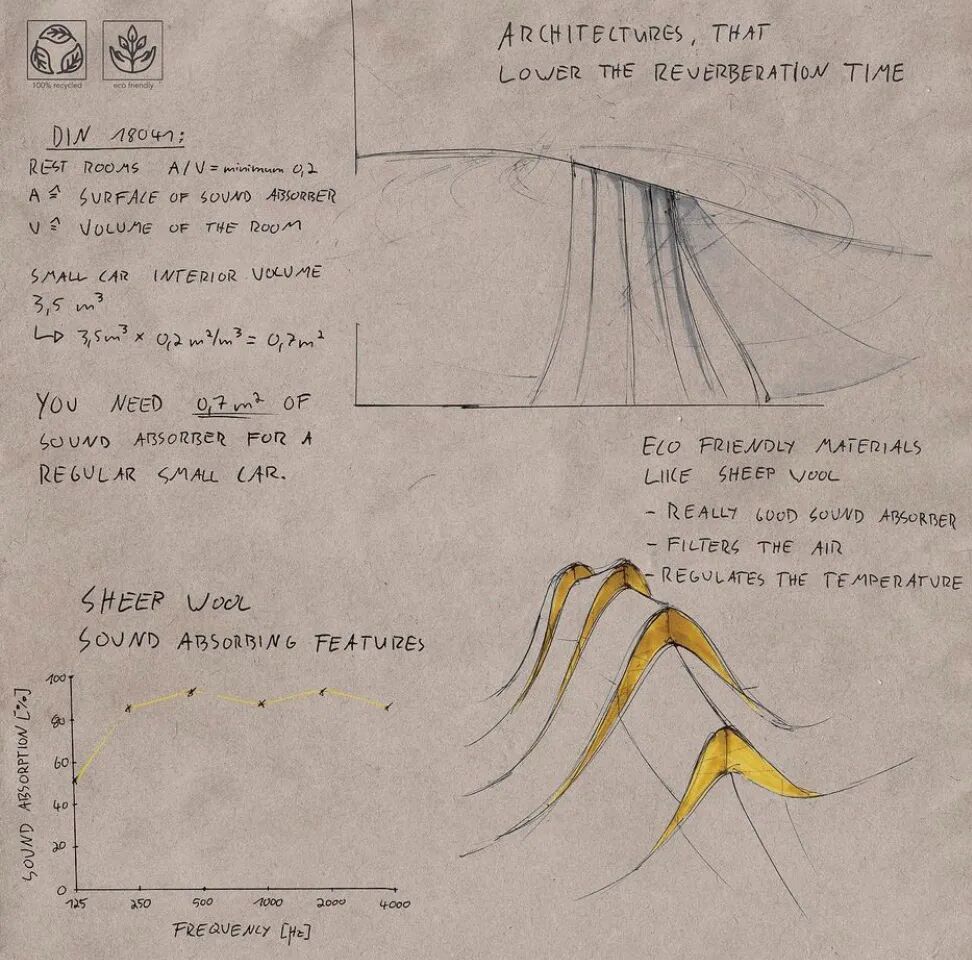 100% recycled
eco friendly
ARCHITECTURES, THAT
LOWER THE REVERBERATION TIME
DIN 18041:
REST ROOMS A/V = minimum 0,2
A ≙ SURFACE OF SOUND ABSORBER
V ≙ VOLUME OF THE ROOM
SMALL CAR INTERIOR VOLUME
3,5 m³
↳ 3,5m³ × 0,2 m²/m³ = 0,7m²
YOU NEED 0,7m² OF
SOUND ABSORBER FOR A
REGULAR SMALL CAR.
ECO FRIENDLY MATERIALS
LIKE SHEEP WOOL
- REALLY GOOD SOUND ABSORBER
- FILTERS THE AIR
- REGULATES THE TEMPERATURE
SHEEP WOOL
SOUND ABSORBING FEATURES
SOUND ABSORPTION [%]
100
80
60
40
20
0
125 250 500 1000 2000 4000
FREQUENCY [Hz]